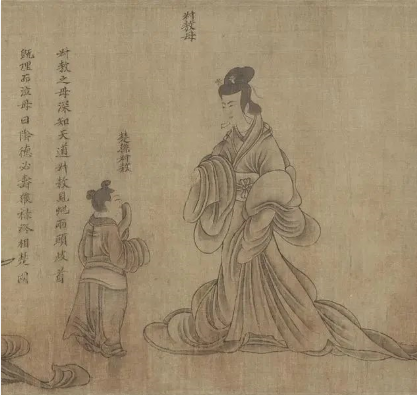 叔敖母
楚孫叔敖
叔敖之母深知天道叔敖見虵兩頭岐首
既埋而泣母曰陰德必壽祿終相楚國